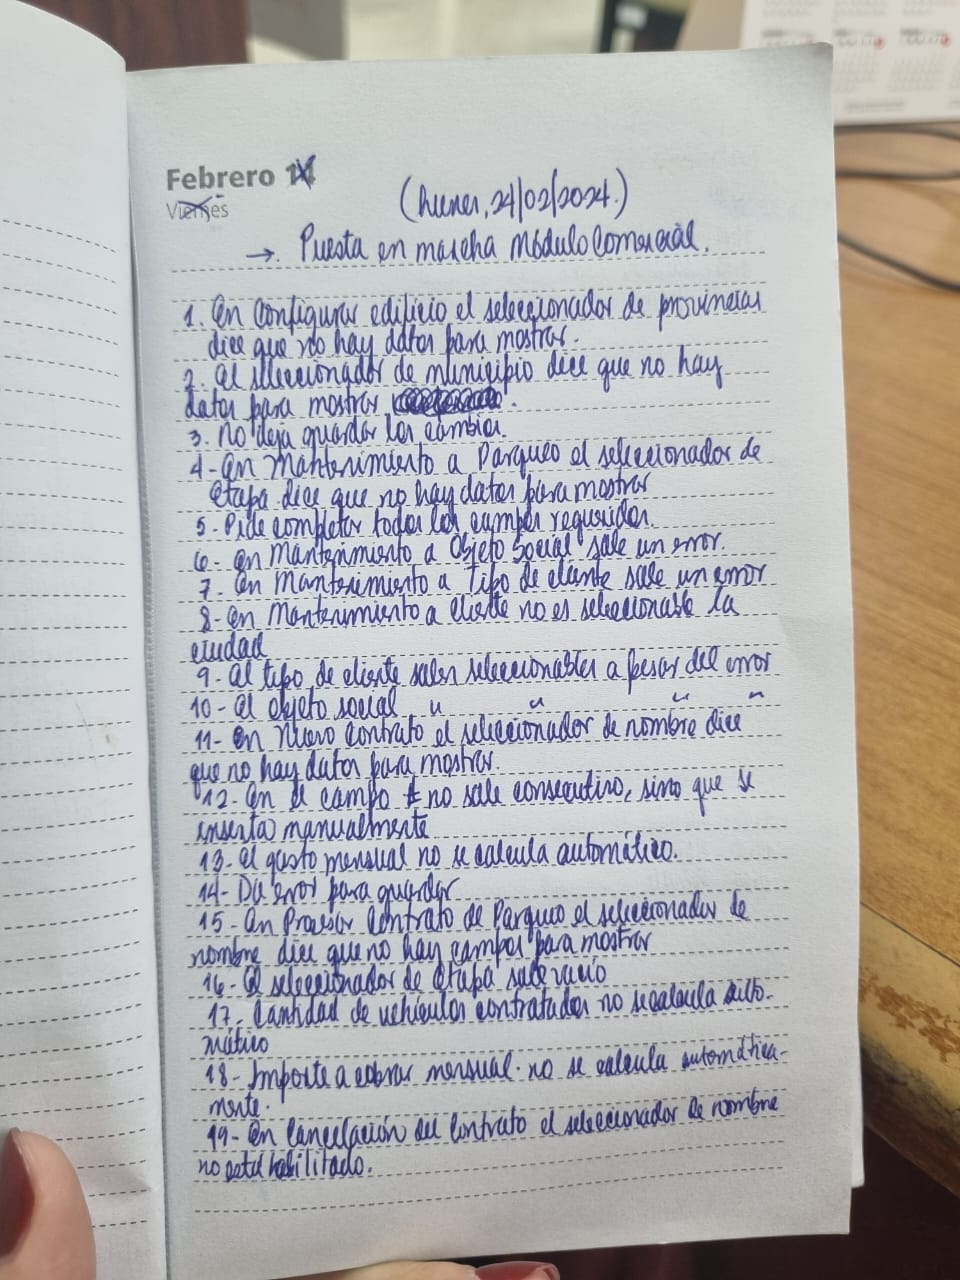 Febrero 14
Viernes
(Lunes, 24/02/2024.)
→. Puesta en marcha Módulo Comercial.
1. En Configurar edificio el seleccionador de provincias
dice que no hay datos para mostrar.
2. El seleccionador de municipio dice que no hay
datos para mostrar
3. No deja guardar los cambios.
4- En Mantenimiento a Parqueo el seleccionador de
etapa dice que no hay datos para mostrar
5- Pide completar todos los campos requeridos.
6- En Mantenimiento a Objeto Social sale un error.
7. En Mantenimiento a Tipo de cliente sale un error
8- En Mantenimiento a cliente no es seleccionable la
ciudad
9- El tipo de cliente salen seleccionables a pesar del error
10- El objeto social " " " "
11- En Nuevo Contrato el seleccionador de nombre dice
que no hay datos para mostrar.
12- En el campo # no sale consecutivo, sino que se
inserta manualmente
13- El gasto mensual no se calcula automático.
14- Da error para guardar
15- En Procesar Contrato de Parqueo el seleccionador de
nombre dice que no hay campos para mostrar
16- El seleccionador de etapa sale vacío
17- Cantidad de vehículos contratados no se calcula auto-
mático
18- Importe a cobrar mensual no se calcula automática-
mente.
19- En Cancelación del Contrato el seleccionador de nombre
no está habilitado.